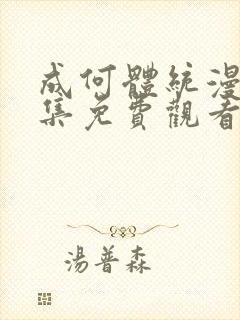 成何體統漫
集免費觀看
湯普森